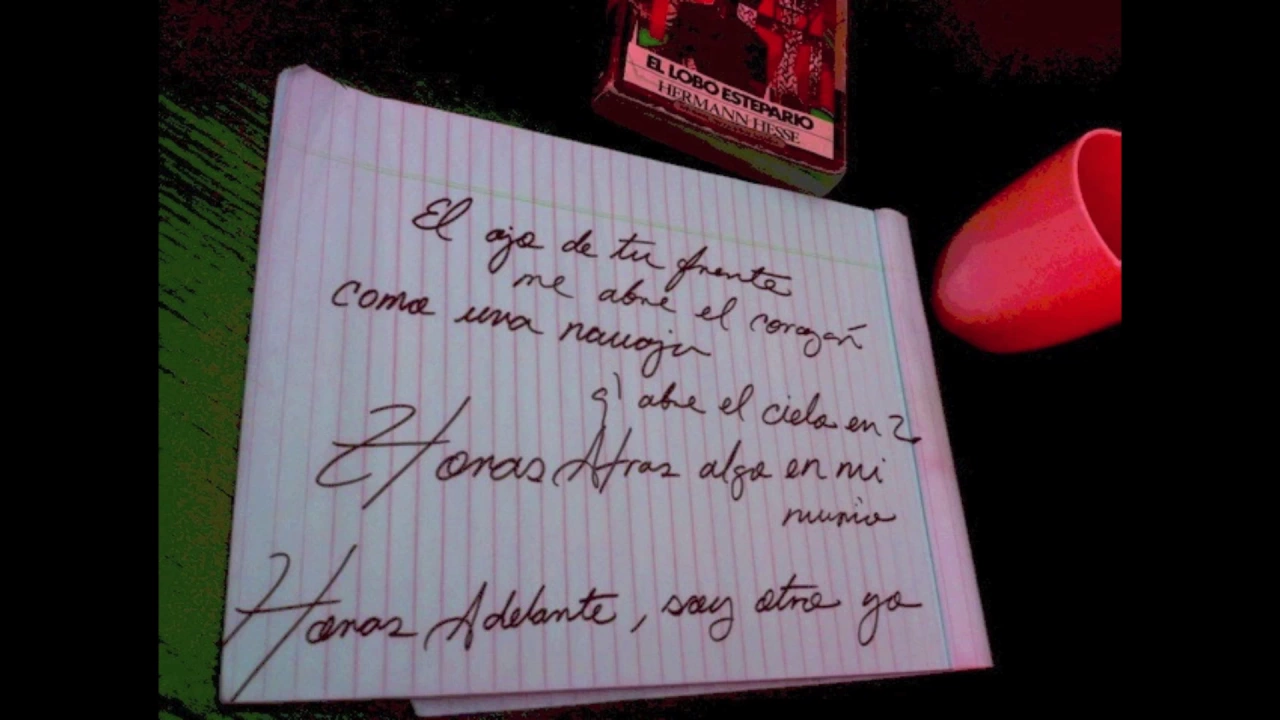 EL LOBO ESTEPARIO
HERMANN HESSE
El ojo de tu frente
me abre el corazón
como una navaja
q' abre el cielo en 2
Horas Atras algo en mi
murio
Horas Adelante, soy otro yo